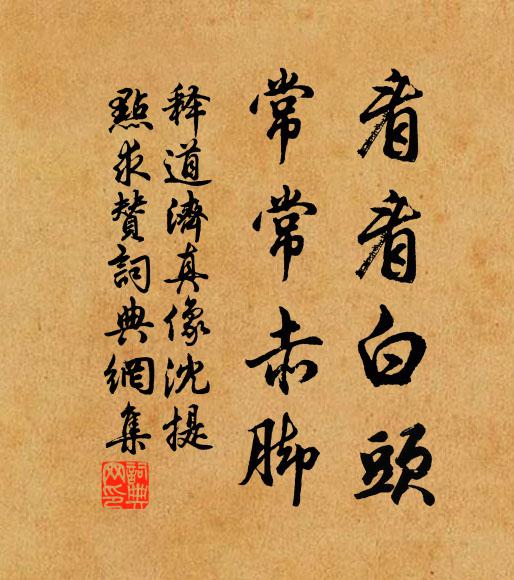 看看白頭
常常赤脚
释道濟真像沈提
點求贊詞典網集
詞典网印